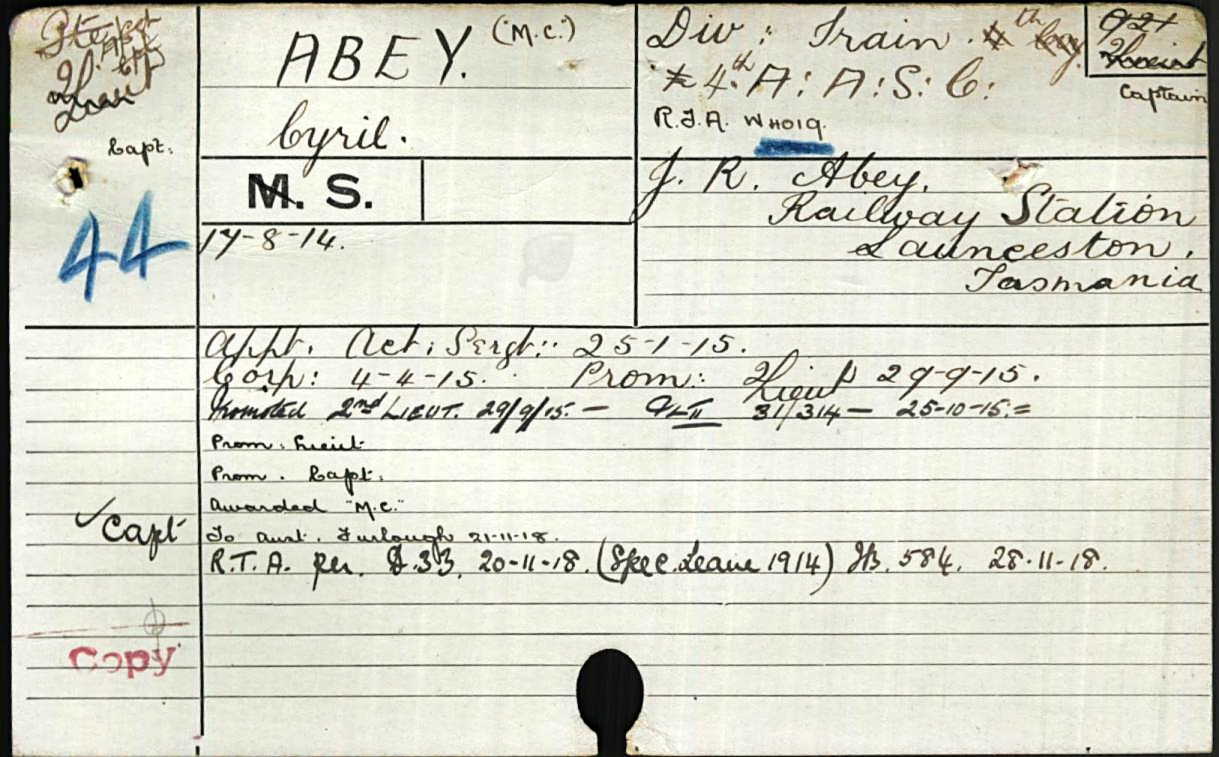 Pte
Capt.
44
ABEY. ("M.C.")
Cyril.
M. S.
17-8-14.
Div: Train. th Coy
4th A: A:S:C:
R.F.A. WHO19.
921
Lieut
Captain
J. R. Abey.
Railway Station
Launceston,
Tasmania
Appt. Act: Sergt:: 25-1-15.
Corp: 4-4-15. Prom: 2/Lieut 29-9-15.
Promoted 2nd LIEUT. 29/9/15. — 31/314 — 25-10-15.=
Prom: Lieut
Prom. Capt:
Awarded "M.C."
✓ Capt
To Aust. Furlough 21-11-18.
R.T.A. per. 33. 20-11-18. (Spec. Leave 1914) 584. 28-11-18.
Copy